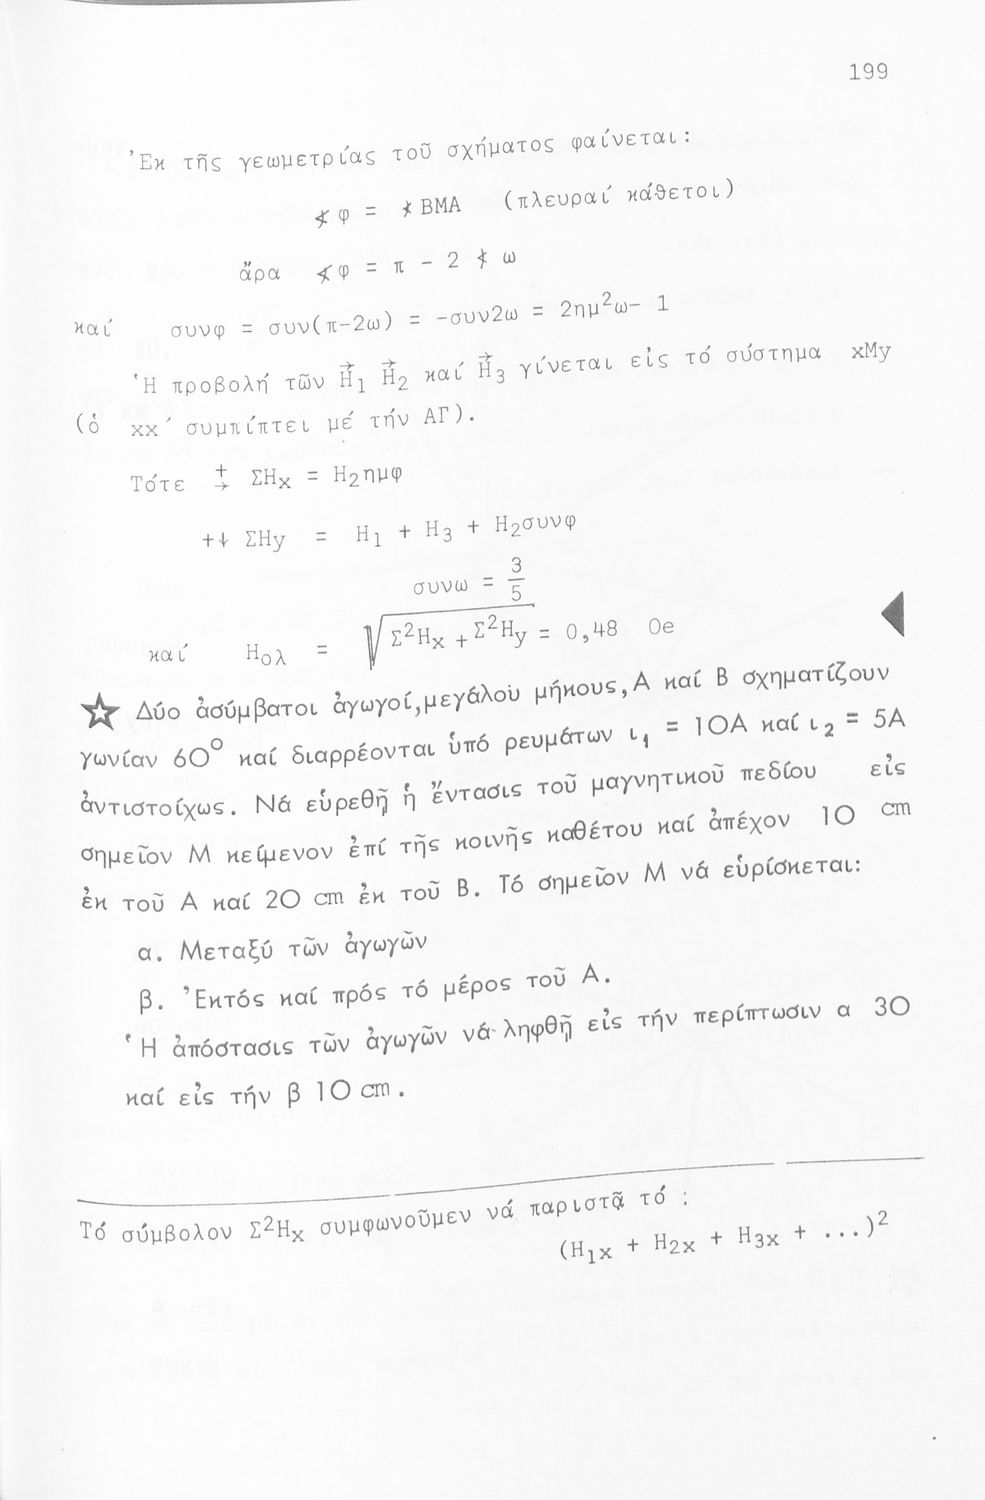 199
Ἐκ τῆς γεωμετρίας τοῦ σχήματος φαίνεται:
∢ φ = ∢ ΒΜΑ (πλευραί κάθετοι)
ἄρα ∢ φ = π - 2 ∢ ω
καί συνφ = συν(π-2ω) = -συν2ω = 2ημ²ω- 1
Ἡ προβολή τῶν H⃗₁ H⃗₂ καί H⃗₃ γίνεται εἰς τό σύστημα xMy
(ὁ xx΄ συμπίπτει μέ τήν ΑΓ).
Τότε ⁺→ ΣHx = H₂ημφ
+↓ ΣHy = H₁ + H₃ + H₂συνφ
συνω = 3/5
καί Hολ = √(Σ²Hx + Σ²Hy) = 0,48 Oe
☆ Δύο ἀσύμβατοι ἀγωγοί,μεγάλου μήκους,Α καί Β σχηματίζουν
γωνίαν 60° καί διαρρέονται ὑπό ρευμάτων ι₁ = 10Α καί ι₂ = 5Α
ἀντιστοίχως. Νά εὑρεθῆ ἡ ἔντασις τοῦ μαγνητικοῦ πεδίου εἰς
σημεῖον Μ κείμενον ἐπί τῆς κοινῆς καθέτου καί ἀπέχον 10 cm
ἐκ τοῦ Α καί 20 cm ἐκ τοῦ Β. Τό σημεῖον Μ νά εὑρίσκεται:
α. Μεταξύ τῶν ἀγωγῶν
β. Ἐκτός καί πρός τό μέρος τοῦ Α.
Ἡ ἀπόστασις τῶν ἀγωγῶν νά ληφθῆ εἰς τήν περίπτωσιν α 30
καί εἰς τήν β 10 cm.
Τό σύμβολον Σ²Hx συμφωνοῦμεν νά παριστᾶ τό :
(H₁x + H₂x + H₃x + ...)²